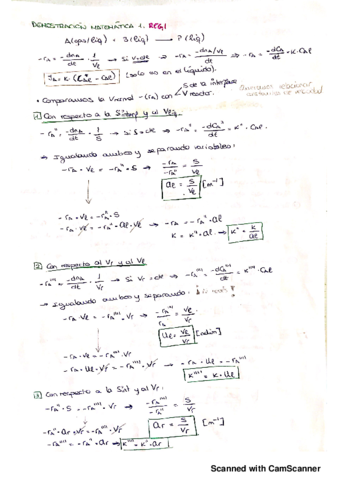 DEMOSTRACIÓN MATEMÁTICA 1. REG1
A(gas/liq) + B(liq) → P(liq)
-rA = -dnA/dt · 1/Vl → Si V=cte → -rA = -dnA/Vl / dt → -rA = -dCA/dt = K·CAl
(solo es en el líquido).
• Comparamos la Vnormal -(rA) con < S de la interfase
V reactor.
1) Con respecto a la Sinterf y al Vliq.
-rA'' = -dnA/dt · 1/S → Si S=cte → -rA'' = -dCA''/dt = K''·CAl.
→ Igualando ambas y separando variables:
-rA · Vl = -rA'' · S → -rA/-rA'' = S/Vl
al = S/Vl [m⁻¹]
-rA · Vl = -rA'' · S
-rA · Vl = -rA'' · al · Vl → -rA = -rA'' · al
K = K'' · al → K'' = K/al
2) Con respecto al Vr y al Vl
-rA''' = -dnA/dt · 1/Vr → Si Vr=cte → -rA''' = -dCA'''/dt = K'''·CAl
→ Igualando ambas y separando.
-rA · Vl = -rA''' · Vr → -rA'''/-rA = Vl/Vr
Ul = Vl/Vr [adim]
-rA · Vl = -rA''' · Vr
-rA · Ul · Vr = -rA''' · Vr → -rA · Ul = -rA'''
K''' = K · Ul
3) Con respecto a la Sint y al Vr.
-rA'' · S = -rA''' · Vr → -rA'''/-rA'' = S/Vr
ar = S/Vr [m⁻¹]
-rA'' · ar · Vr = -rA''' · Vr
-rA''' = -rA'' · ar → K''' = K'' · ar
Scanned with CamScanner